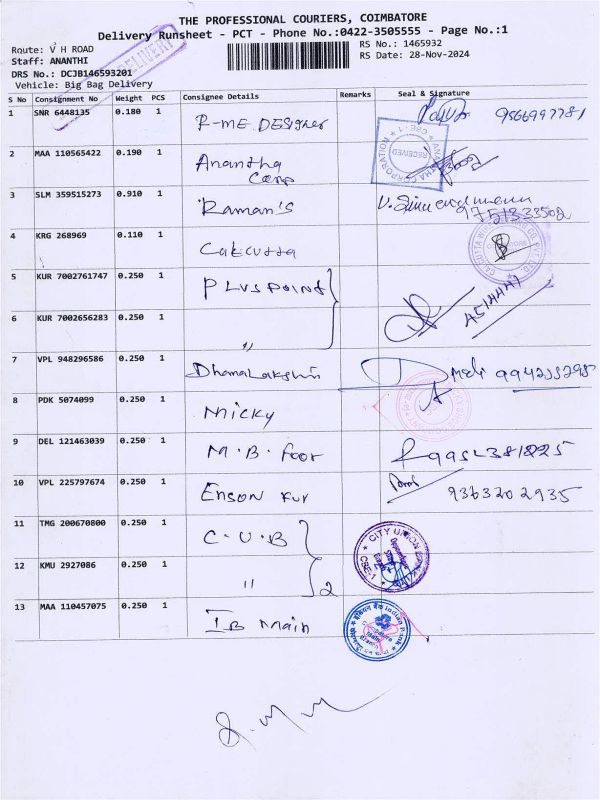 THE PROFESSIONAL COURIERS, COIMBATORE
Delivery Runsheet - PCT - Phone No.:0422-3505555 - Page No.:1
Route: V H ROAD
Staff: ANANTHI
DRS No.: DCJB146593201
Vehicle: Big Bag Delivery
RS No.: 1465932
RS Date: 28-Nov-2024
DELIVERY
S No Consignment No Weight PCS Consignee Details Remarks Seal & Signature
1 SNR 6448135 0.180 1 R-ME DESIGNER 9566997781
2 MAA 110565422 0.190 1 Anantha Corp
RECEIVED
CORPORATION
CBE-1
3 SLM 359515273 0.910 1 Raman's 9751333502
4 KRG 268969 0.110 1 Calcutta
5 KUR 7002761747 0.250 1 PLUS POINT
6 KUR 7002656283 0.250 1 "
7 VPL 948296586 0.250 1 DhanaLakshmi
8 PDK 5074099 0.250 1 Micky
9 DEL 121463039 0.250 1 M.B. Foor
10 VPL 225797674 0.250 1 Enson Kur 9363202935
11 TMG 200670800 0.250 1 C.U.B
CITY UNION
CBE-1
12 KMU 2927086 0.250 1 " 2
13 MAA 110457075 0.250 1 IB Main
Indian Bank